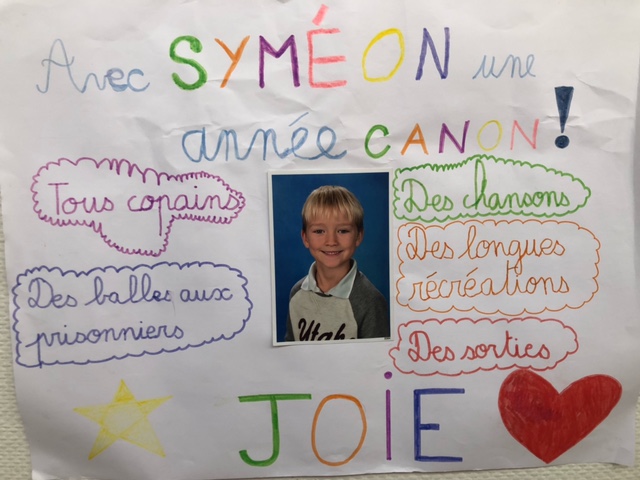 Avec SYMÉON une
année CANON !
Tous copains
Des balles aux
prisonniers
Utah
Des chansons
Des longues
récréations
Des sorties
JOiE